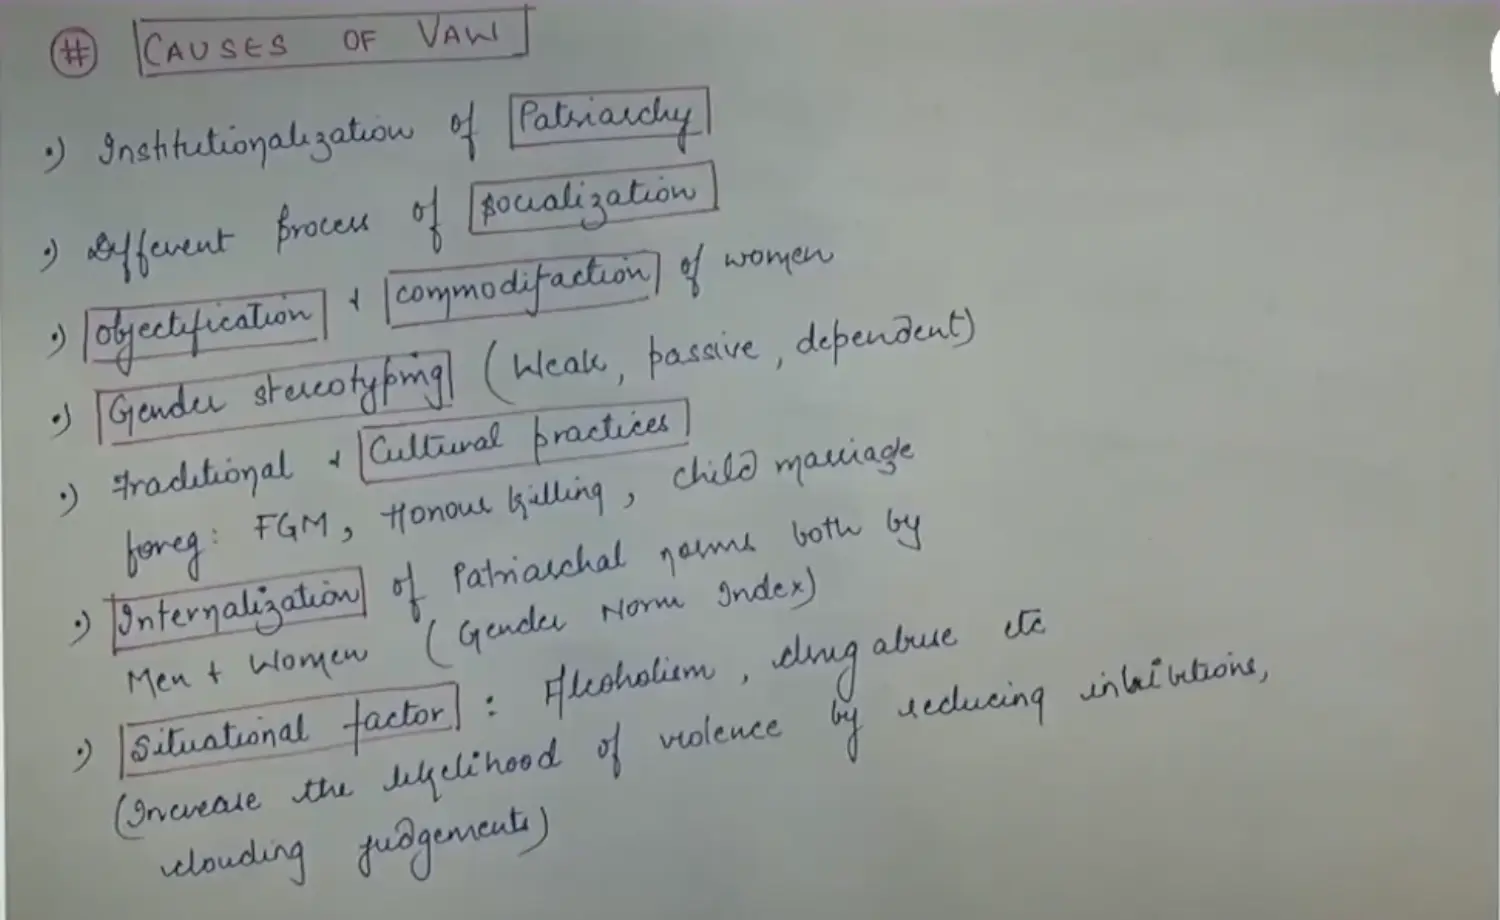 # CAUSES OF VAW
•) Institutionalization of Patriarchy
•) Different process of socialization
•) objectification & commodifaction of women
•) Gender stereotyping (Weak, passive, dependent)
•) Traditional & Cultural practices
foreg: FGM, Honour killing, child marriage
•) Internalization of Patriarchal norms both by
Men + Women (Gender Norm Index)
•) Situational factor : Alcoholism, drug abuse etc
(Increase the likelihood of violence by reducing inhibitions,
clouding judgements)